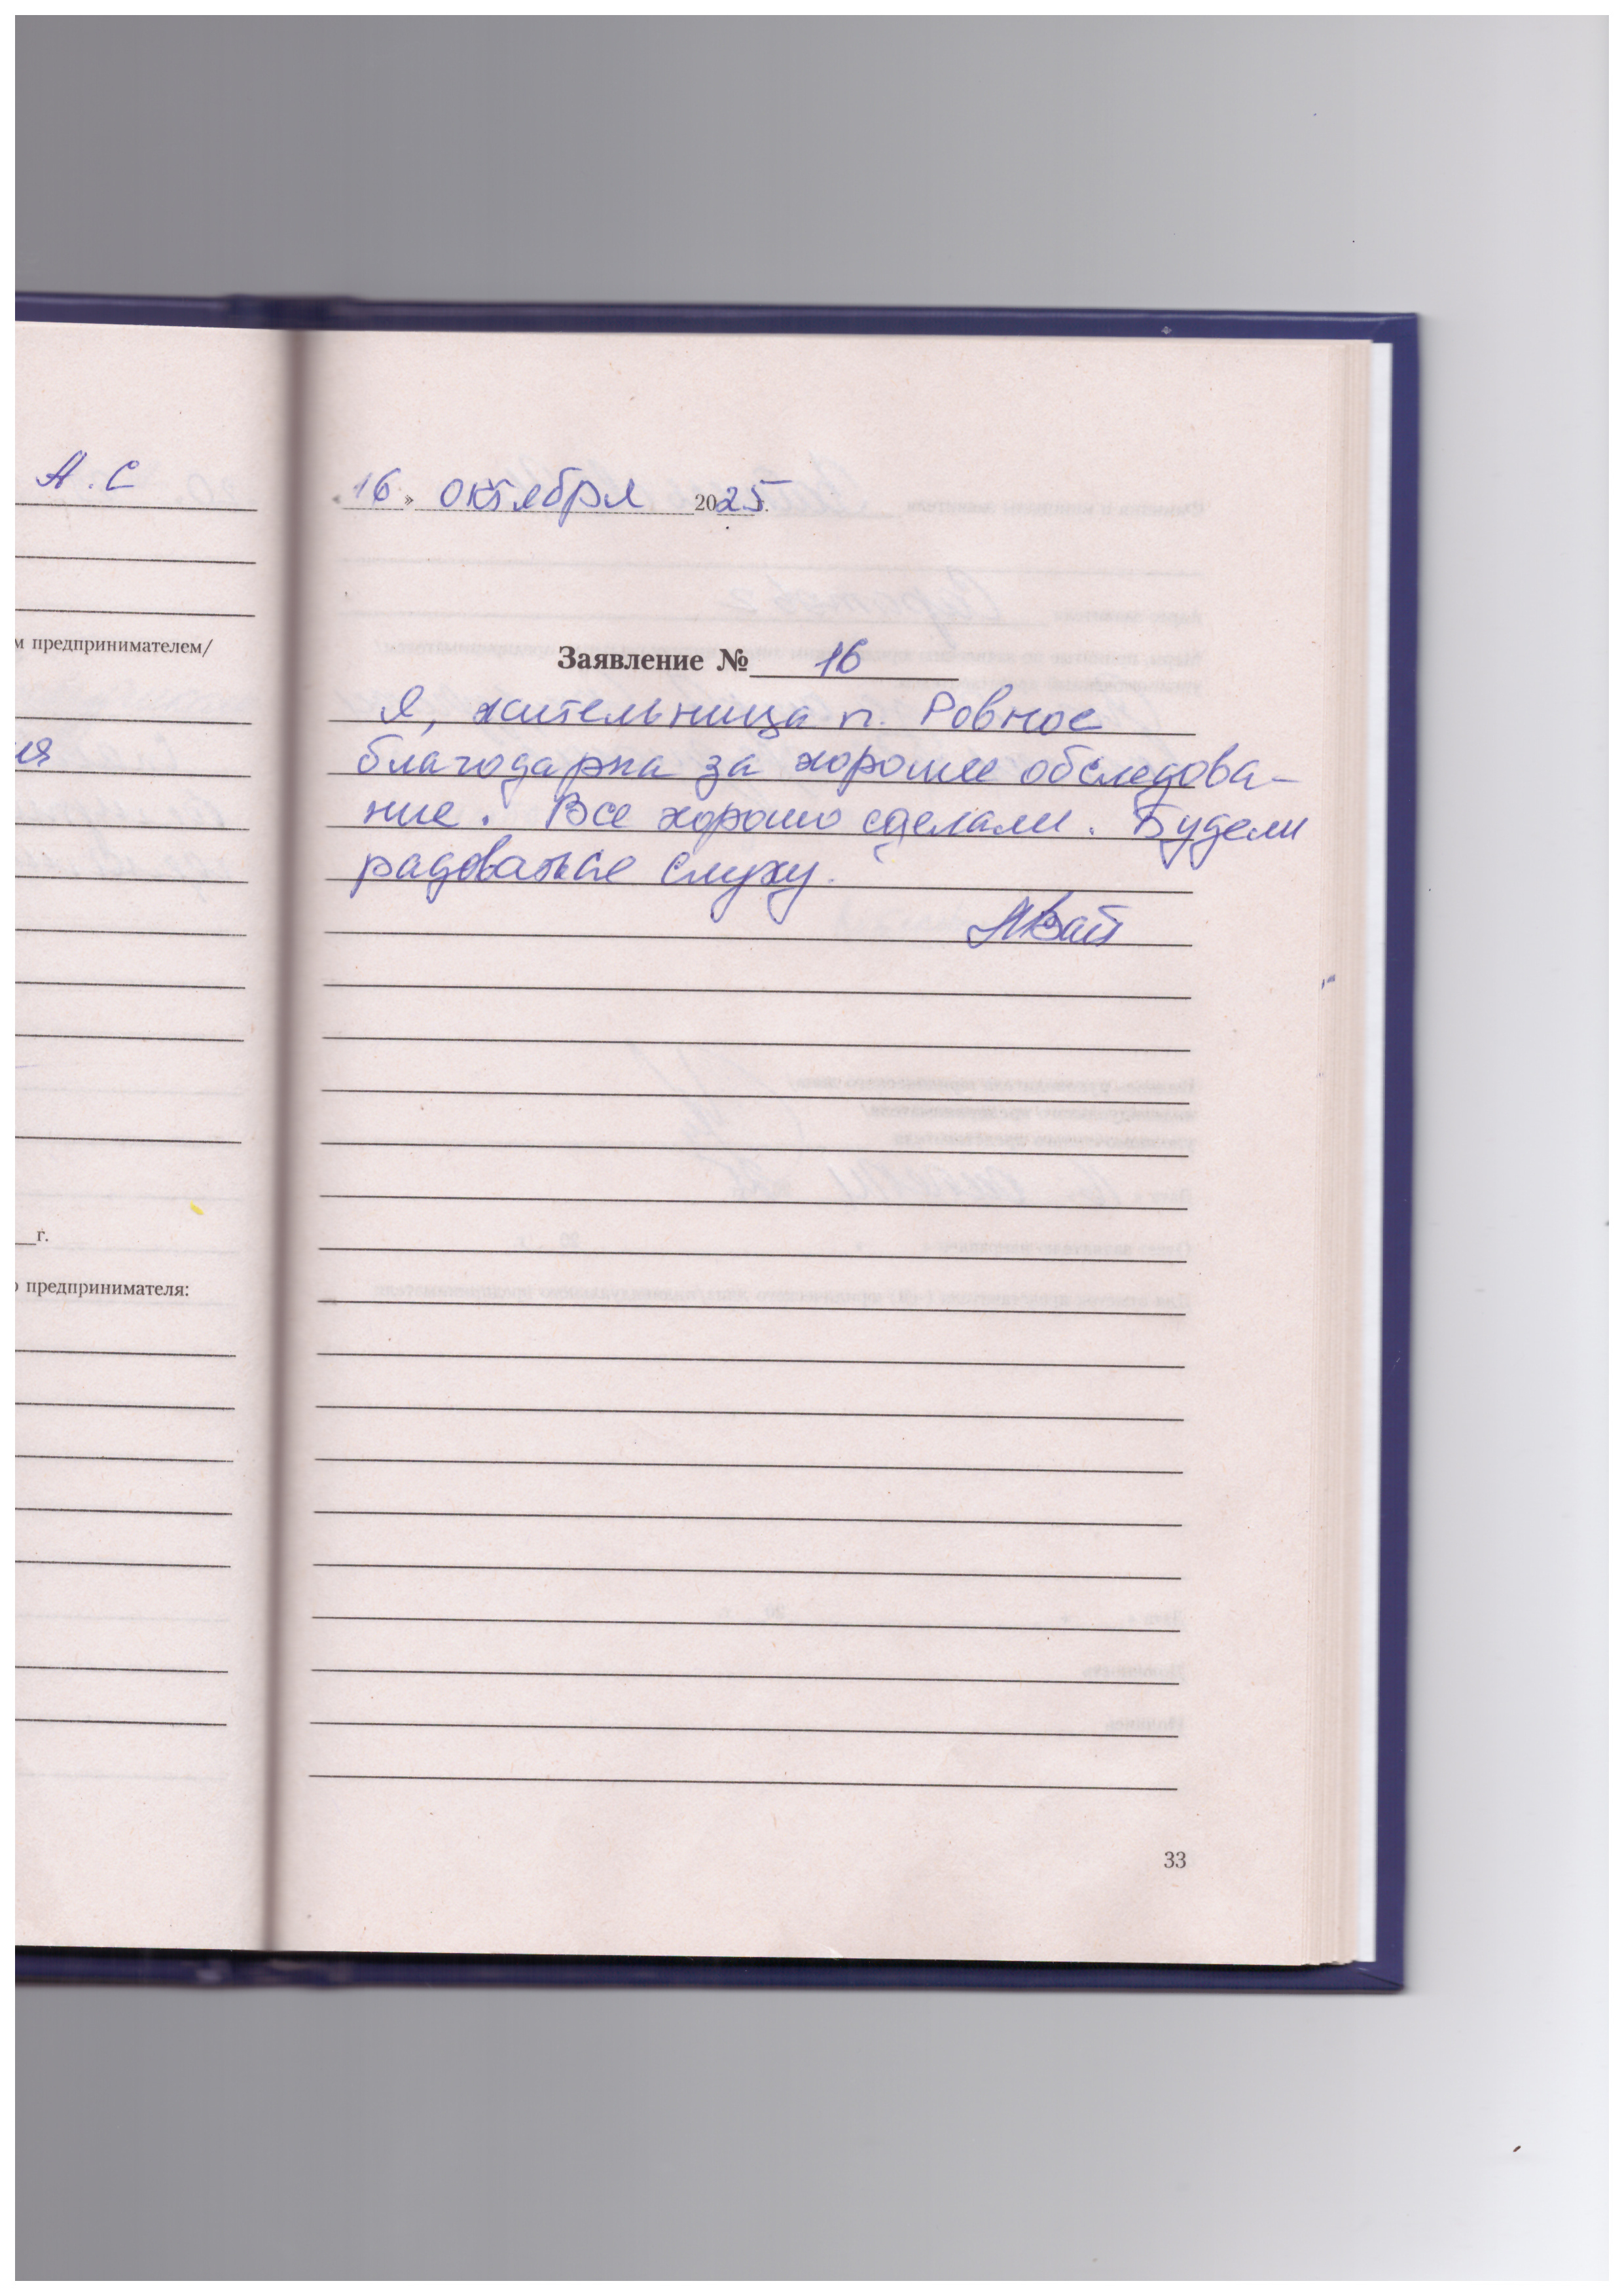 А. С
м предпринимателем/
ия
г.
о предпринимателя:
«16» октября 2025 г.
Заявление № 16
Я, жительница п. Ровное
благодарна за хорошее обследова-
ние. Все хорошо сделали. Будем
радоваться слуху.
33